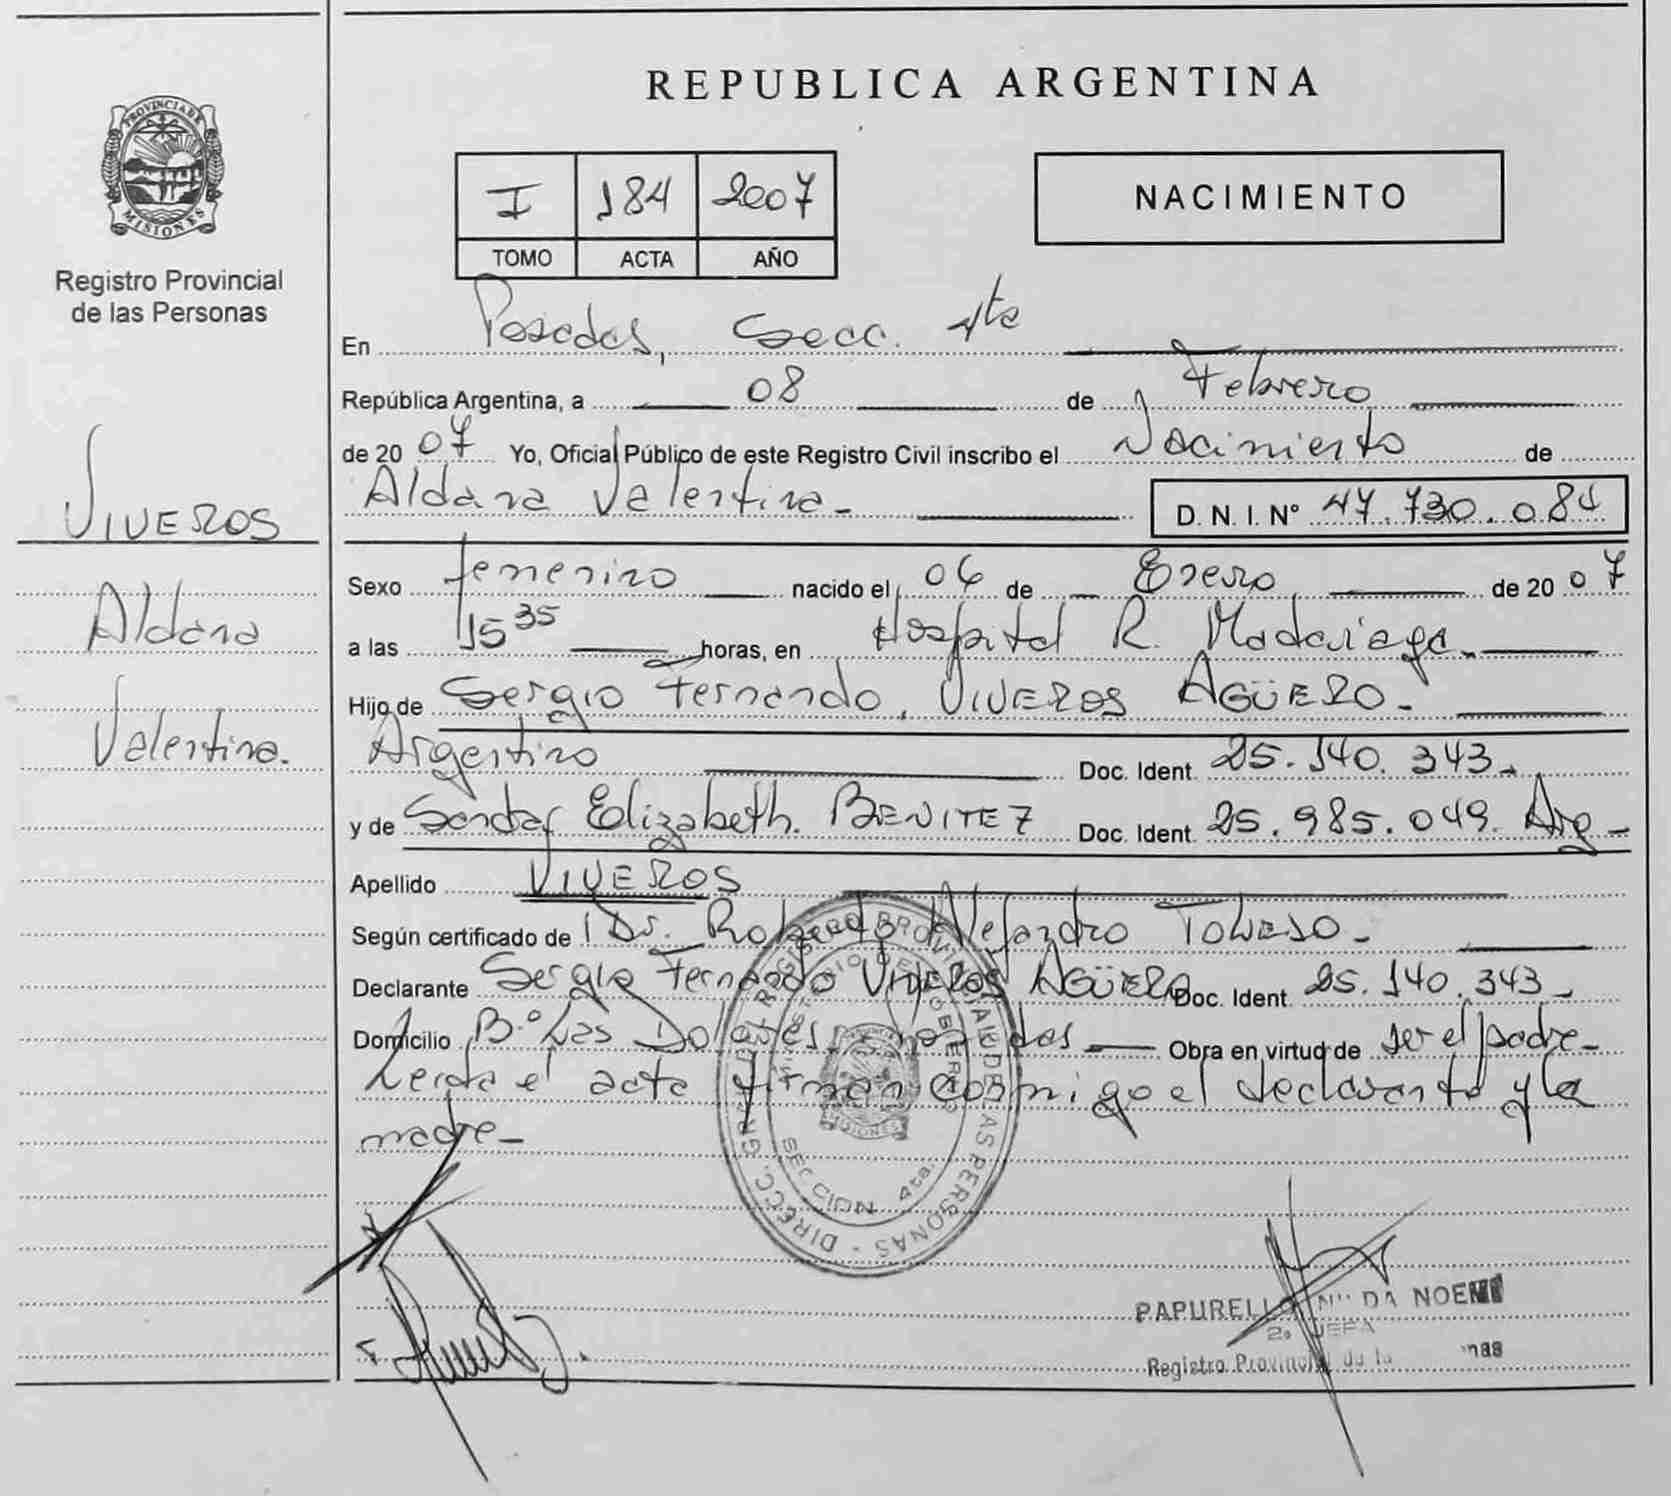 PROVINCIA DE
MISIONES
Registro Provincial
de las Personas
VIVEROS
Aldana
Valentina.
REPUBLICA ARGENTINA
I 184 2007
TOMO ACTA AÑO
NACIMIENTO
En Posadas, Secc. 4ta
República Argentina, a 08 de Febrero
de 20 07 Yo, Oficial Público de este Registro Civil inscribo el Nacimiento de
Aldana Valentina.- D. N. I. N° 47.730.084
Sexo femenino nacido el 06 de Enero de 20 07
a las 15 35 horas, en Hospital R. Madariaga.-
Hijo de Sergio Fernando, VIVEROS AGÜERO.-
Argentino Doc. Ident. 25.140.343.-
y de Elizabeth. BENITEZ Doc. Ident. 25.985.049. Arg-
Apellido VIVEROS
Según certificado de Dr. Roberto Alejandro
Declarante Sergio Fernando VIVEROS AGÜERO Doc. Ident. 25.140.343.-
Domicilio B.° Las Dolores, Posadas Obra en virtud de ser el padre-
Leída el acta firman conmigo el declarante y la
madre-
DIRECC. GRAL. DEL REGISTRO PROVINCIAL DE LAS PERSONAS -
MINISTERIO DE GOBIERNO
SECCION 4ta.
MISIONES
NOEMI
2a JEFA
Registro Provincial de la